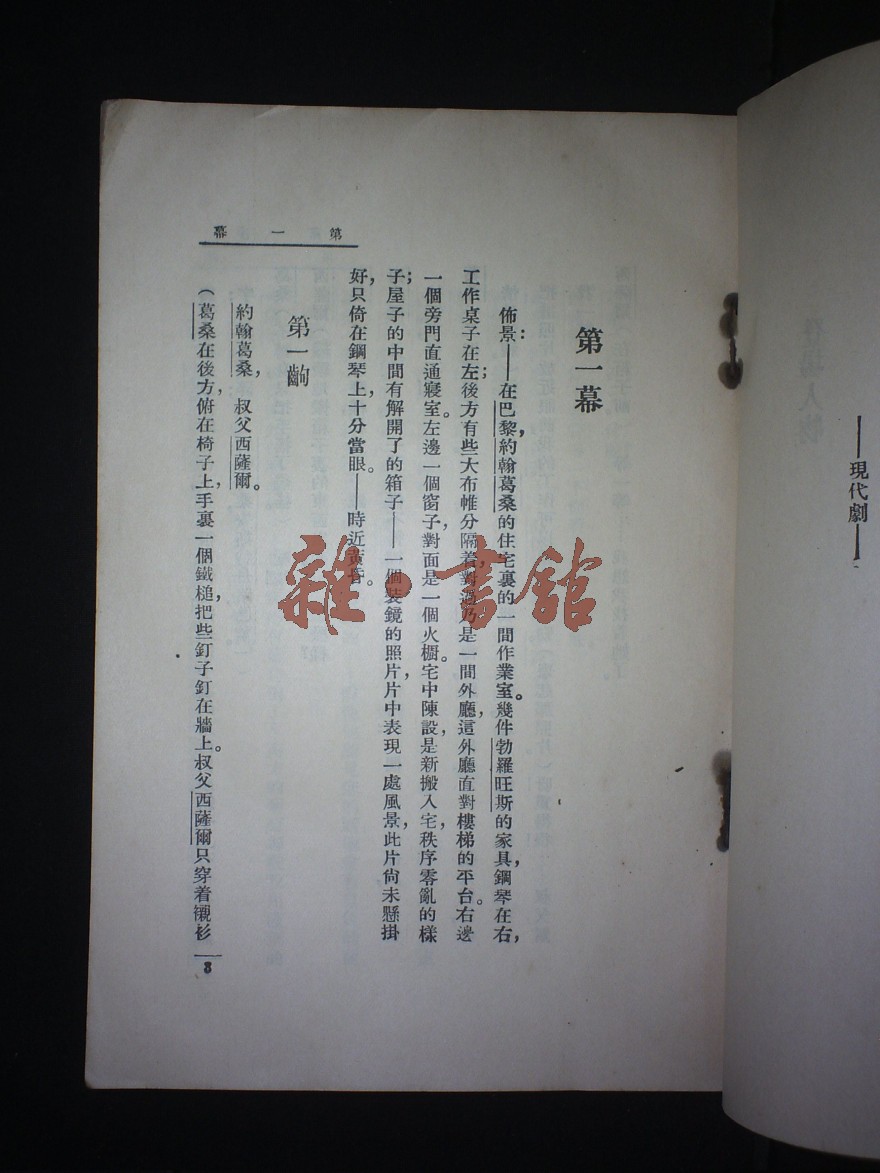 ——現代劇——
第一幕
佈景：——在巴黎，約翰葛桑的住宅裏的一間作業室。幾件勃羅旺斯的家具，鋼琴在右，
工作桌子在左；後方有些大布帷分隔着，對過乃是一間外廳，這外廳直對樓梯的平台。右邊
一個旁門直通寢室。左邊一個窗子，對面是一個火櫥。宅中陳設，是新搬入宅秩序零亂的樣
子；屋子的中間有解開了的箱子——一個裝鏡的照片，片中表現一處風景，此片尚未懸掛
好，只倚在鋼琴上，十分當眼。——時近黃昏。
第一齣
約翰葛桑，叔父西薩爾。
（葛桑在後方，俯在椅子上，手裏一個鐵槌，把些釘子釘在牆上。叔父西薩爾只穿着襯衫
第一幕
3
雜·書館